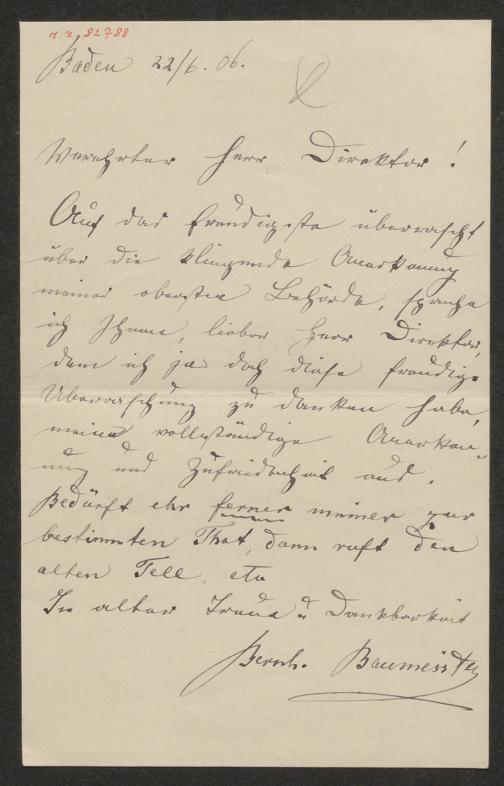 J. N. 82788
Baden 22/6. 06.
Verehrter Herr Direktor!
Auf das freudigste überrascht
über die klingende Anerkennung
meiner obersten Behörde, spreche
ich Ihnen, lieber Herr Direktor,
dem ich ja doch diese freudige
Überraschung zu danken habe,
meine vollständige Anerken-
nung und Zufriedenheit aus.
Bedürft ihr ferner meiner zur
bestimmten That, dann ruft den
alten Tell, etc
In alter Treue u Dankbarkeit
Bernh. Baumeister